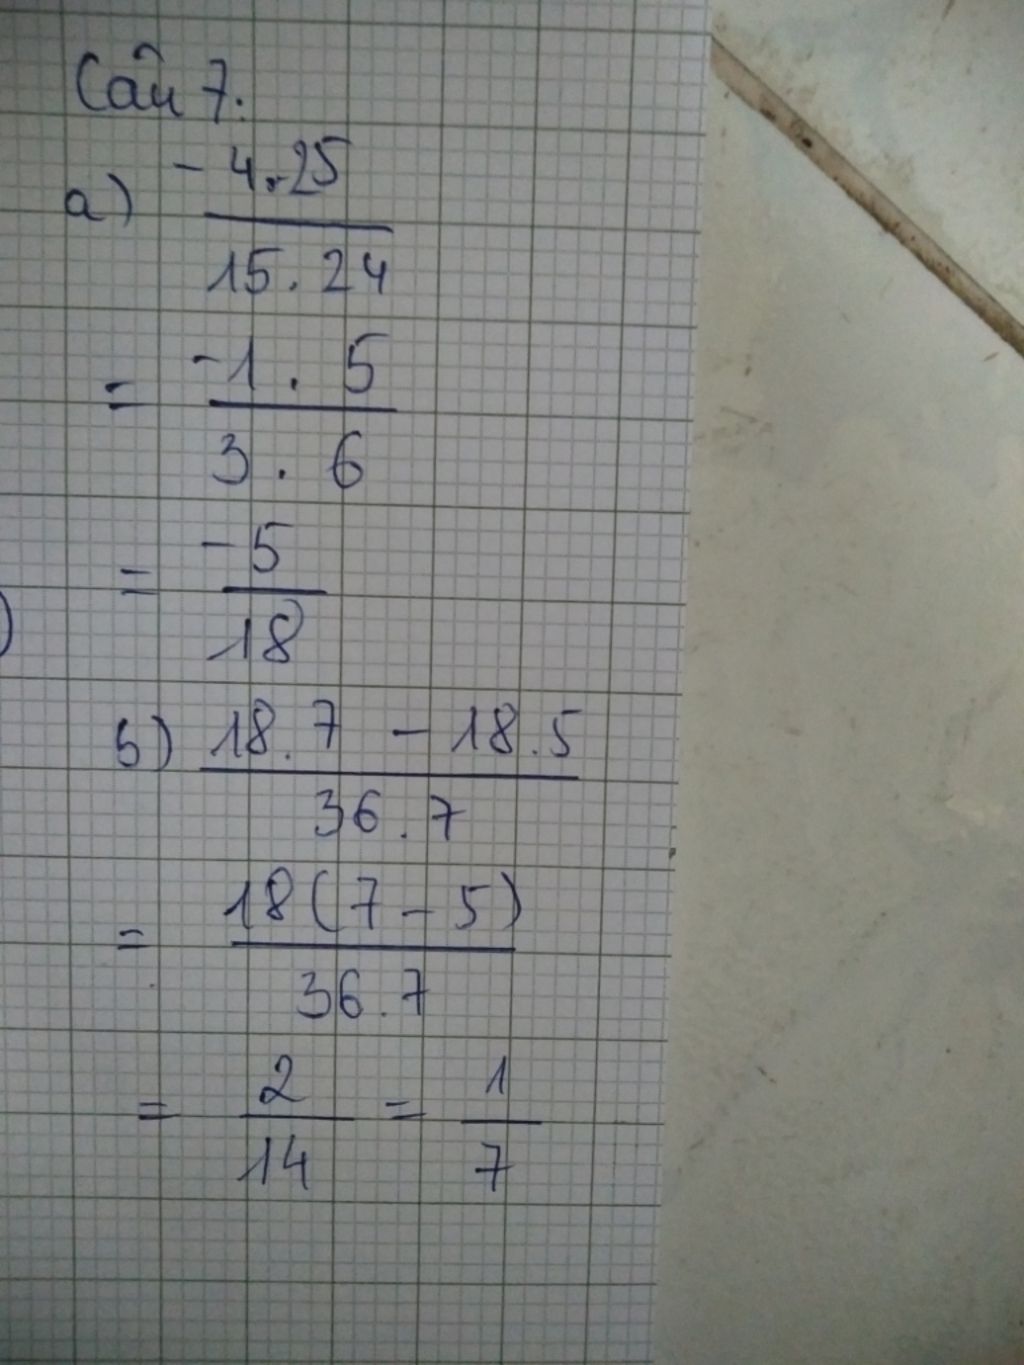 Câu 7.
a) -4.25
15.24
= -1.5
3.6
= -5
18
b) 18.7 - 18.5
36.7
= 18(7-5)
36.7
= 2 = 1
14 7